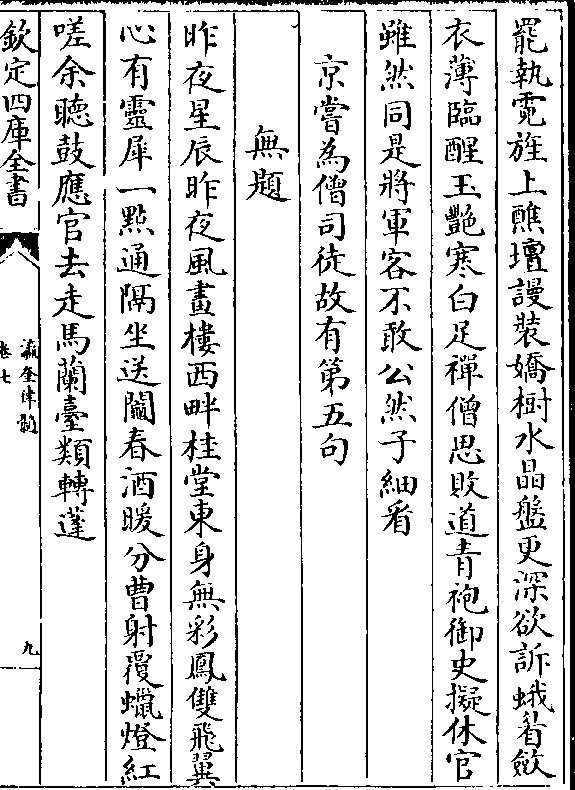 罷執霓旌上醮壇謾裝嬌樹水晶盤更深欲訴蛾眉斂
衣薄臨醒玉艷寒白足禪僧思敗道青袍御史擬休官
雖然同是將軍客不敢公然子細看
京嘗為僧司徒故有第五句
無題
昨夜星辰昨夜風畫樓西畔桂堂東身無彩鳳雙飛翼
心有靈犀一點通隔坐送鬮春酒暖分曹射覆蠟燈紅
嗟余聽鼓應官去走馬蘭臺類轉蓬
欽定四庫全書
瀛奎律髓
卷七
九